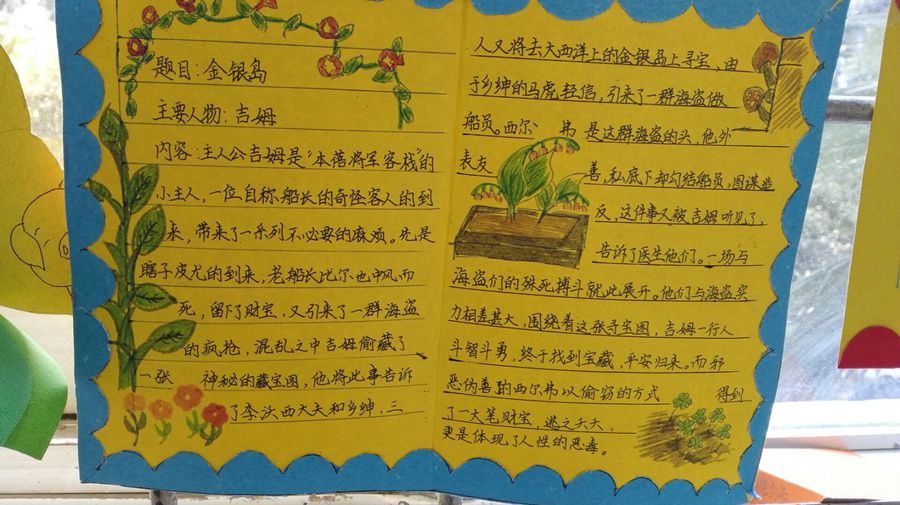 题目：金银岛
主要人物：吉姆
内容：主人公吉姆是“本蓓将军客栈”的
小主人，一位自称船长的奇怪客人的到
来，带来了一系列不必要的麻烦。先是
瞎子皮尤的到来，老船长比尔也中风而
死，留下了财宝，又引来了一群海盗
的疯抢，混乱之中吉姆偷藏了
一张 神秘的藏宝图，他将此事告诉
了李沃西大夫和乡绅，三
人又将去大西洋上的金银岛上寻宝，由
于乡绅的马虎轻信，引来了一群海盗做
船员。西尔 弗 是这群海盗的头，他外
表友 善，私底下却勾结船员，图谋造
反，这件事又被吉姆听见了，
告诉了医生他们。一场与
海盗们的殊死搏斗就此展开。他们与海盗实
力相差甚大，围绕着这张寻宝图，吉姆一行人
斗智斗勇，终于找到宝藏，平安归来。而邪
恶伪善的西尔弗以偷窃的方式 得到
了一大笔财宝，逃之夭夭，
更是体现了人性的恶毒。